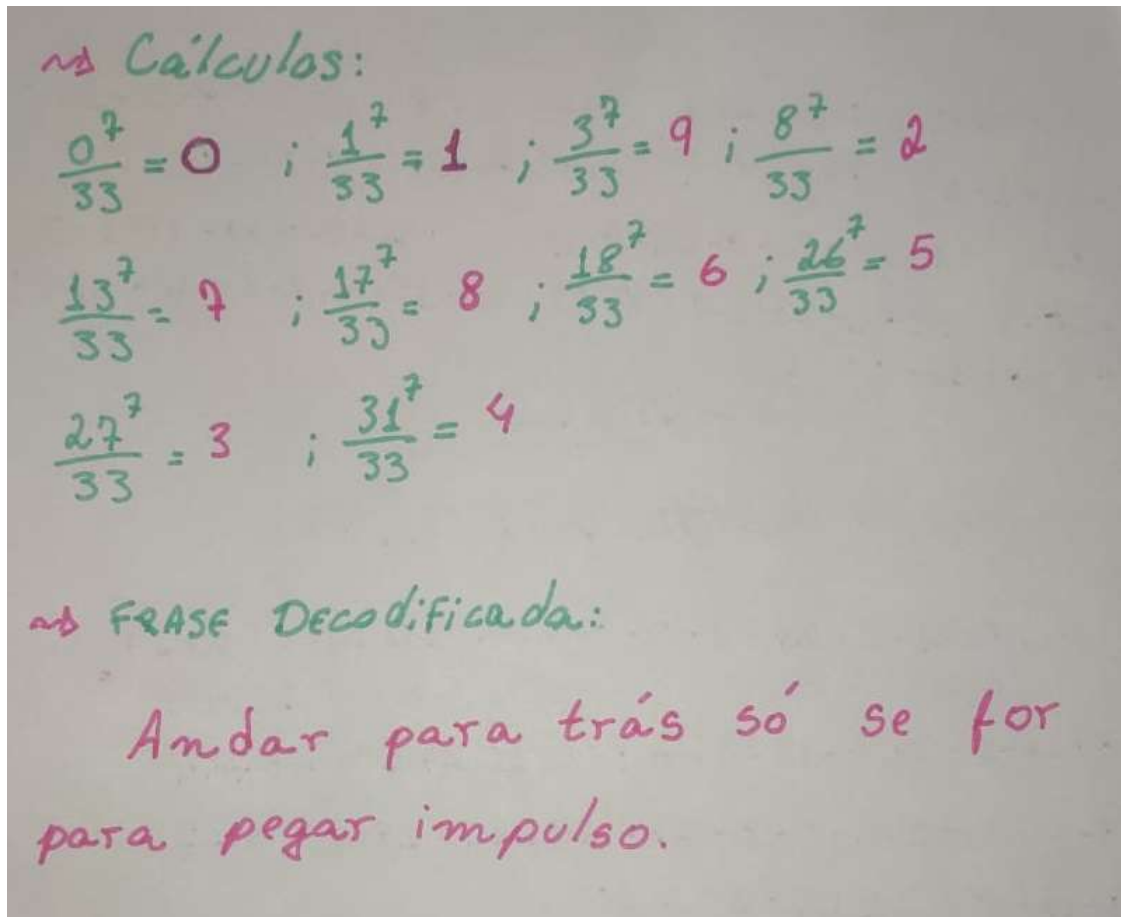 ⇝ Cálculos:
0⁷/33 = 0 ; 1⁷/33 = 1 ; 3⁷/33 = 9 ; 8⁷/33 = 2
13⁷/33 = 7 ; 17⁷/33 = 8 ; 18⁷/33 = 6 ; 26⁷/33 = 5
27⁷/33 = 3 ; 31⁷/33 = 4
⇝ FRASE Decodificada:
Andar para trás só se for
para pegar impulso.